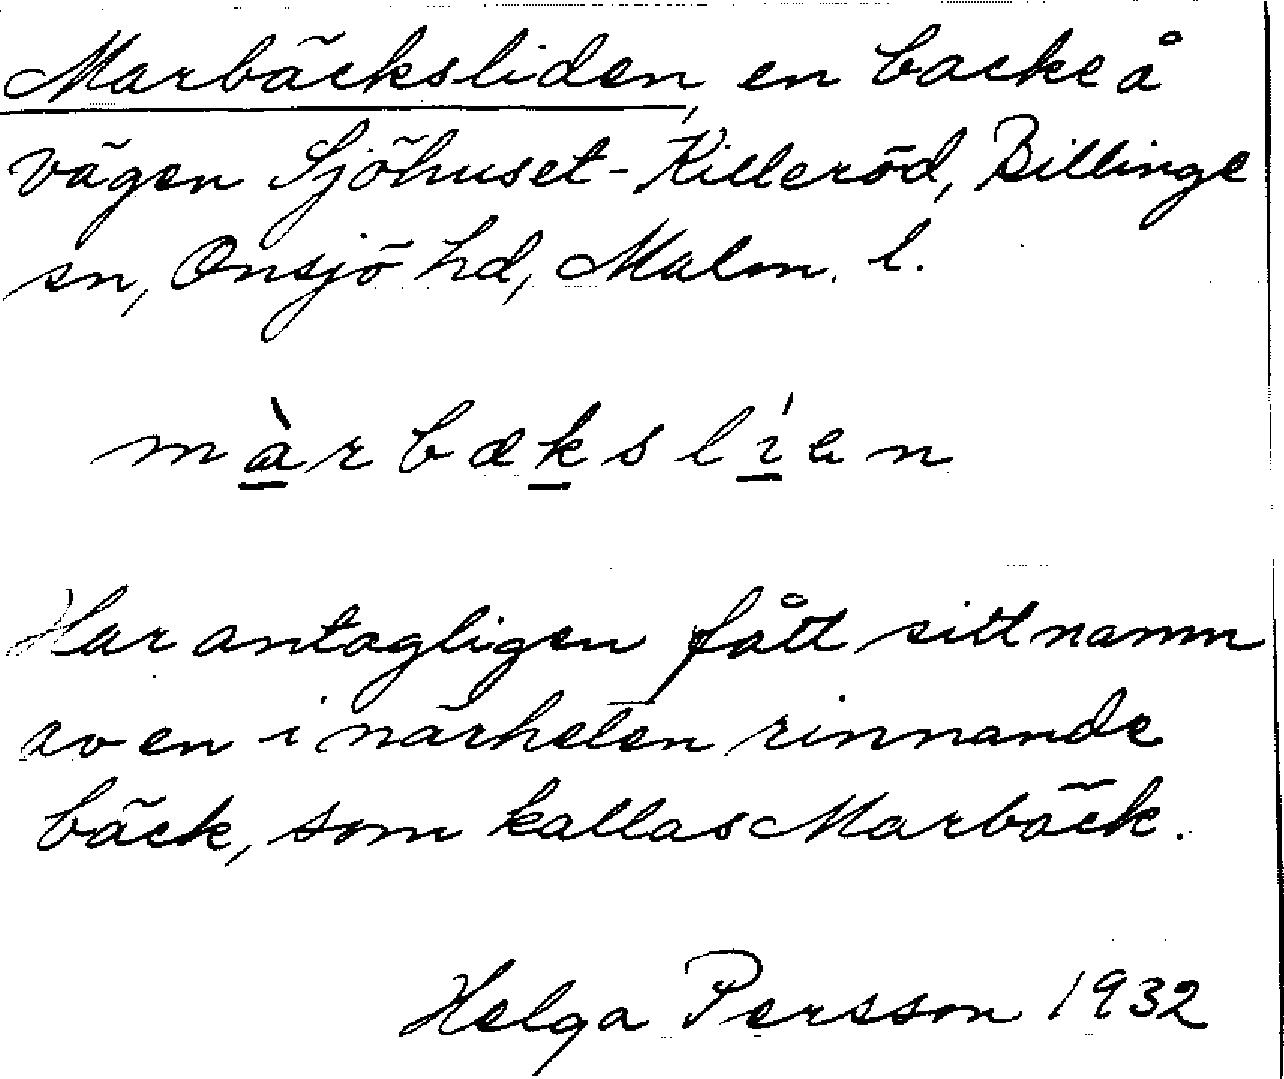 Marbäcksliden, en backe å
vägen Sjöhuset-Killeröd, Billinge
sn, Onsjö hd, Malm. l.
màrbækslíen
Har antagligen fått sitt namn
av en i närheten rinnande
bäck, som kallas Marbäck.
Helga Persson 1932